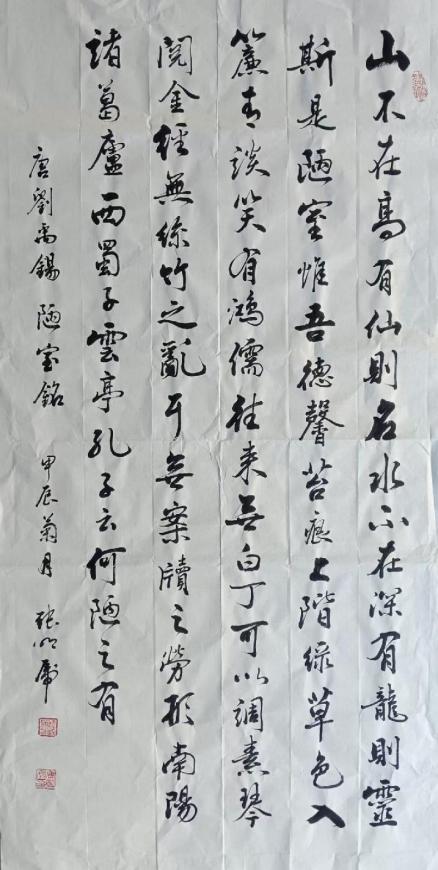 山不在高有仙則名水不在深有龍則靈
斯是陋室惟吾德馨苔痕上階綠草色入
簾青談笑有鴻儒往来無白丁可以調素琴
閱金經無絲竹之亂耳無案牘之勞形南陽
諸葛廬西蜀子雲亭孔子云何陋之有
唐劉禹錫 陋室銘 甲辰菊月 張